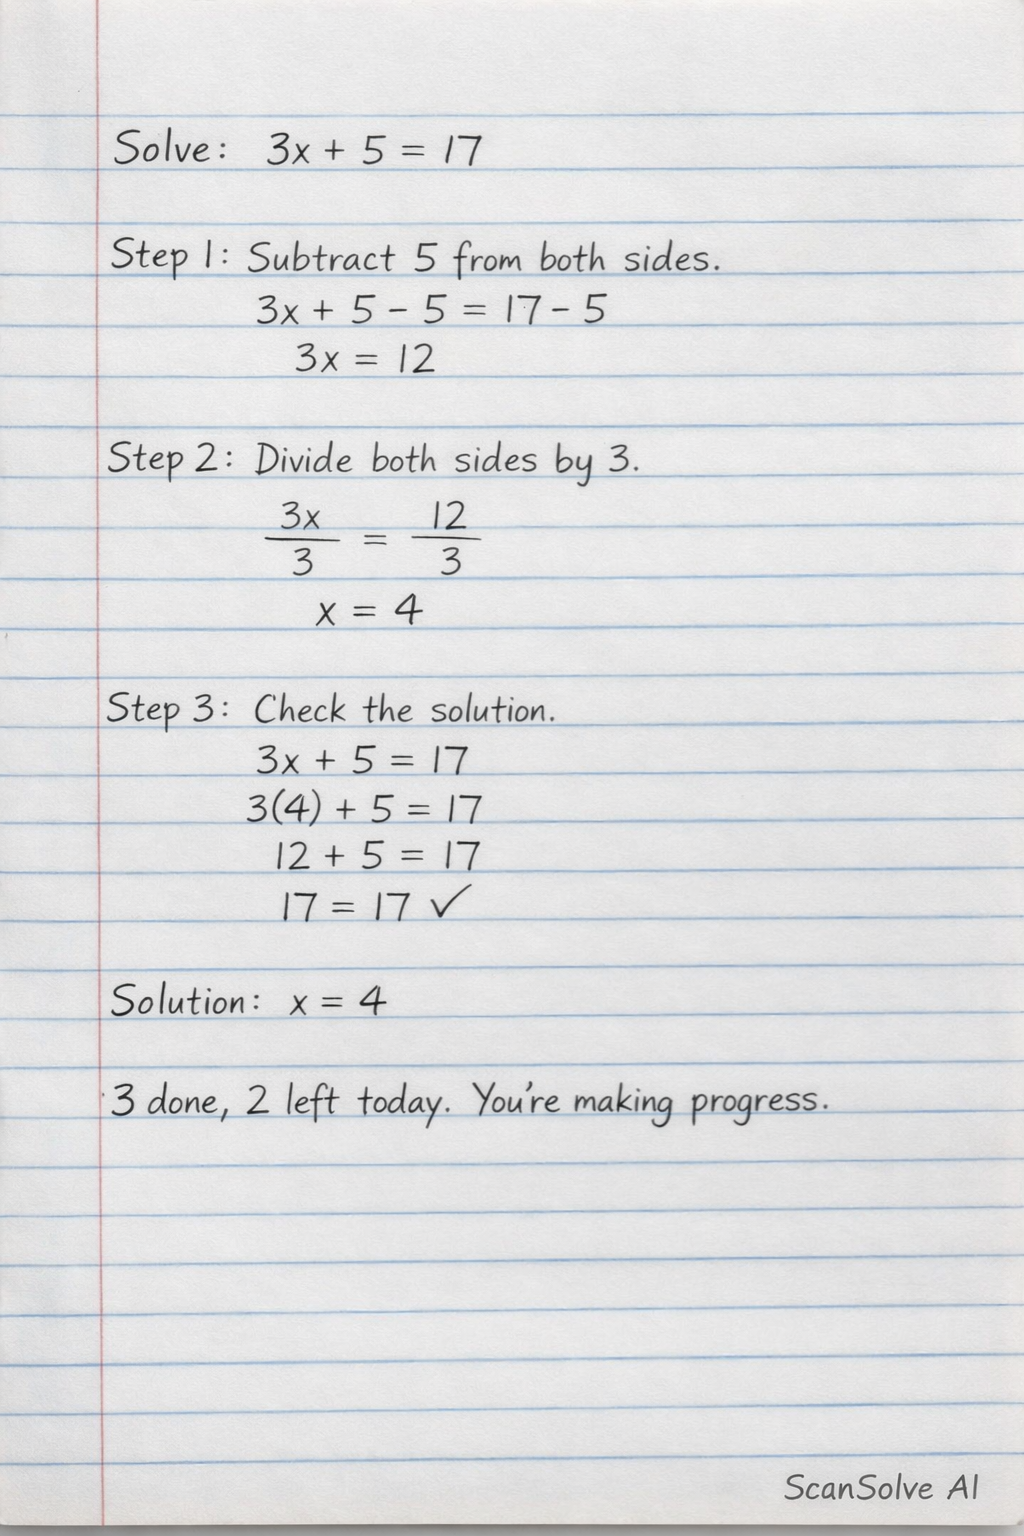 Solve: 3x + 5 = 17
Step 1: Subtract 5 from both sides.
3x + 5 - 5 = 17 - 5
3x = 12
Step 2: Divide both sides by 3.
3x/3 = 12/3
x = 4
Step 3: Check the solution.
3x + 5 = 17
3(4) + 5 = 17
12 + 5 = 17
17 = 17 ✓
Solution: x = 4
3 done, 2 left today. You're making progress.
ScanSolve AI